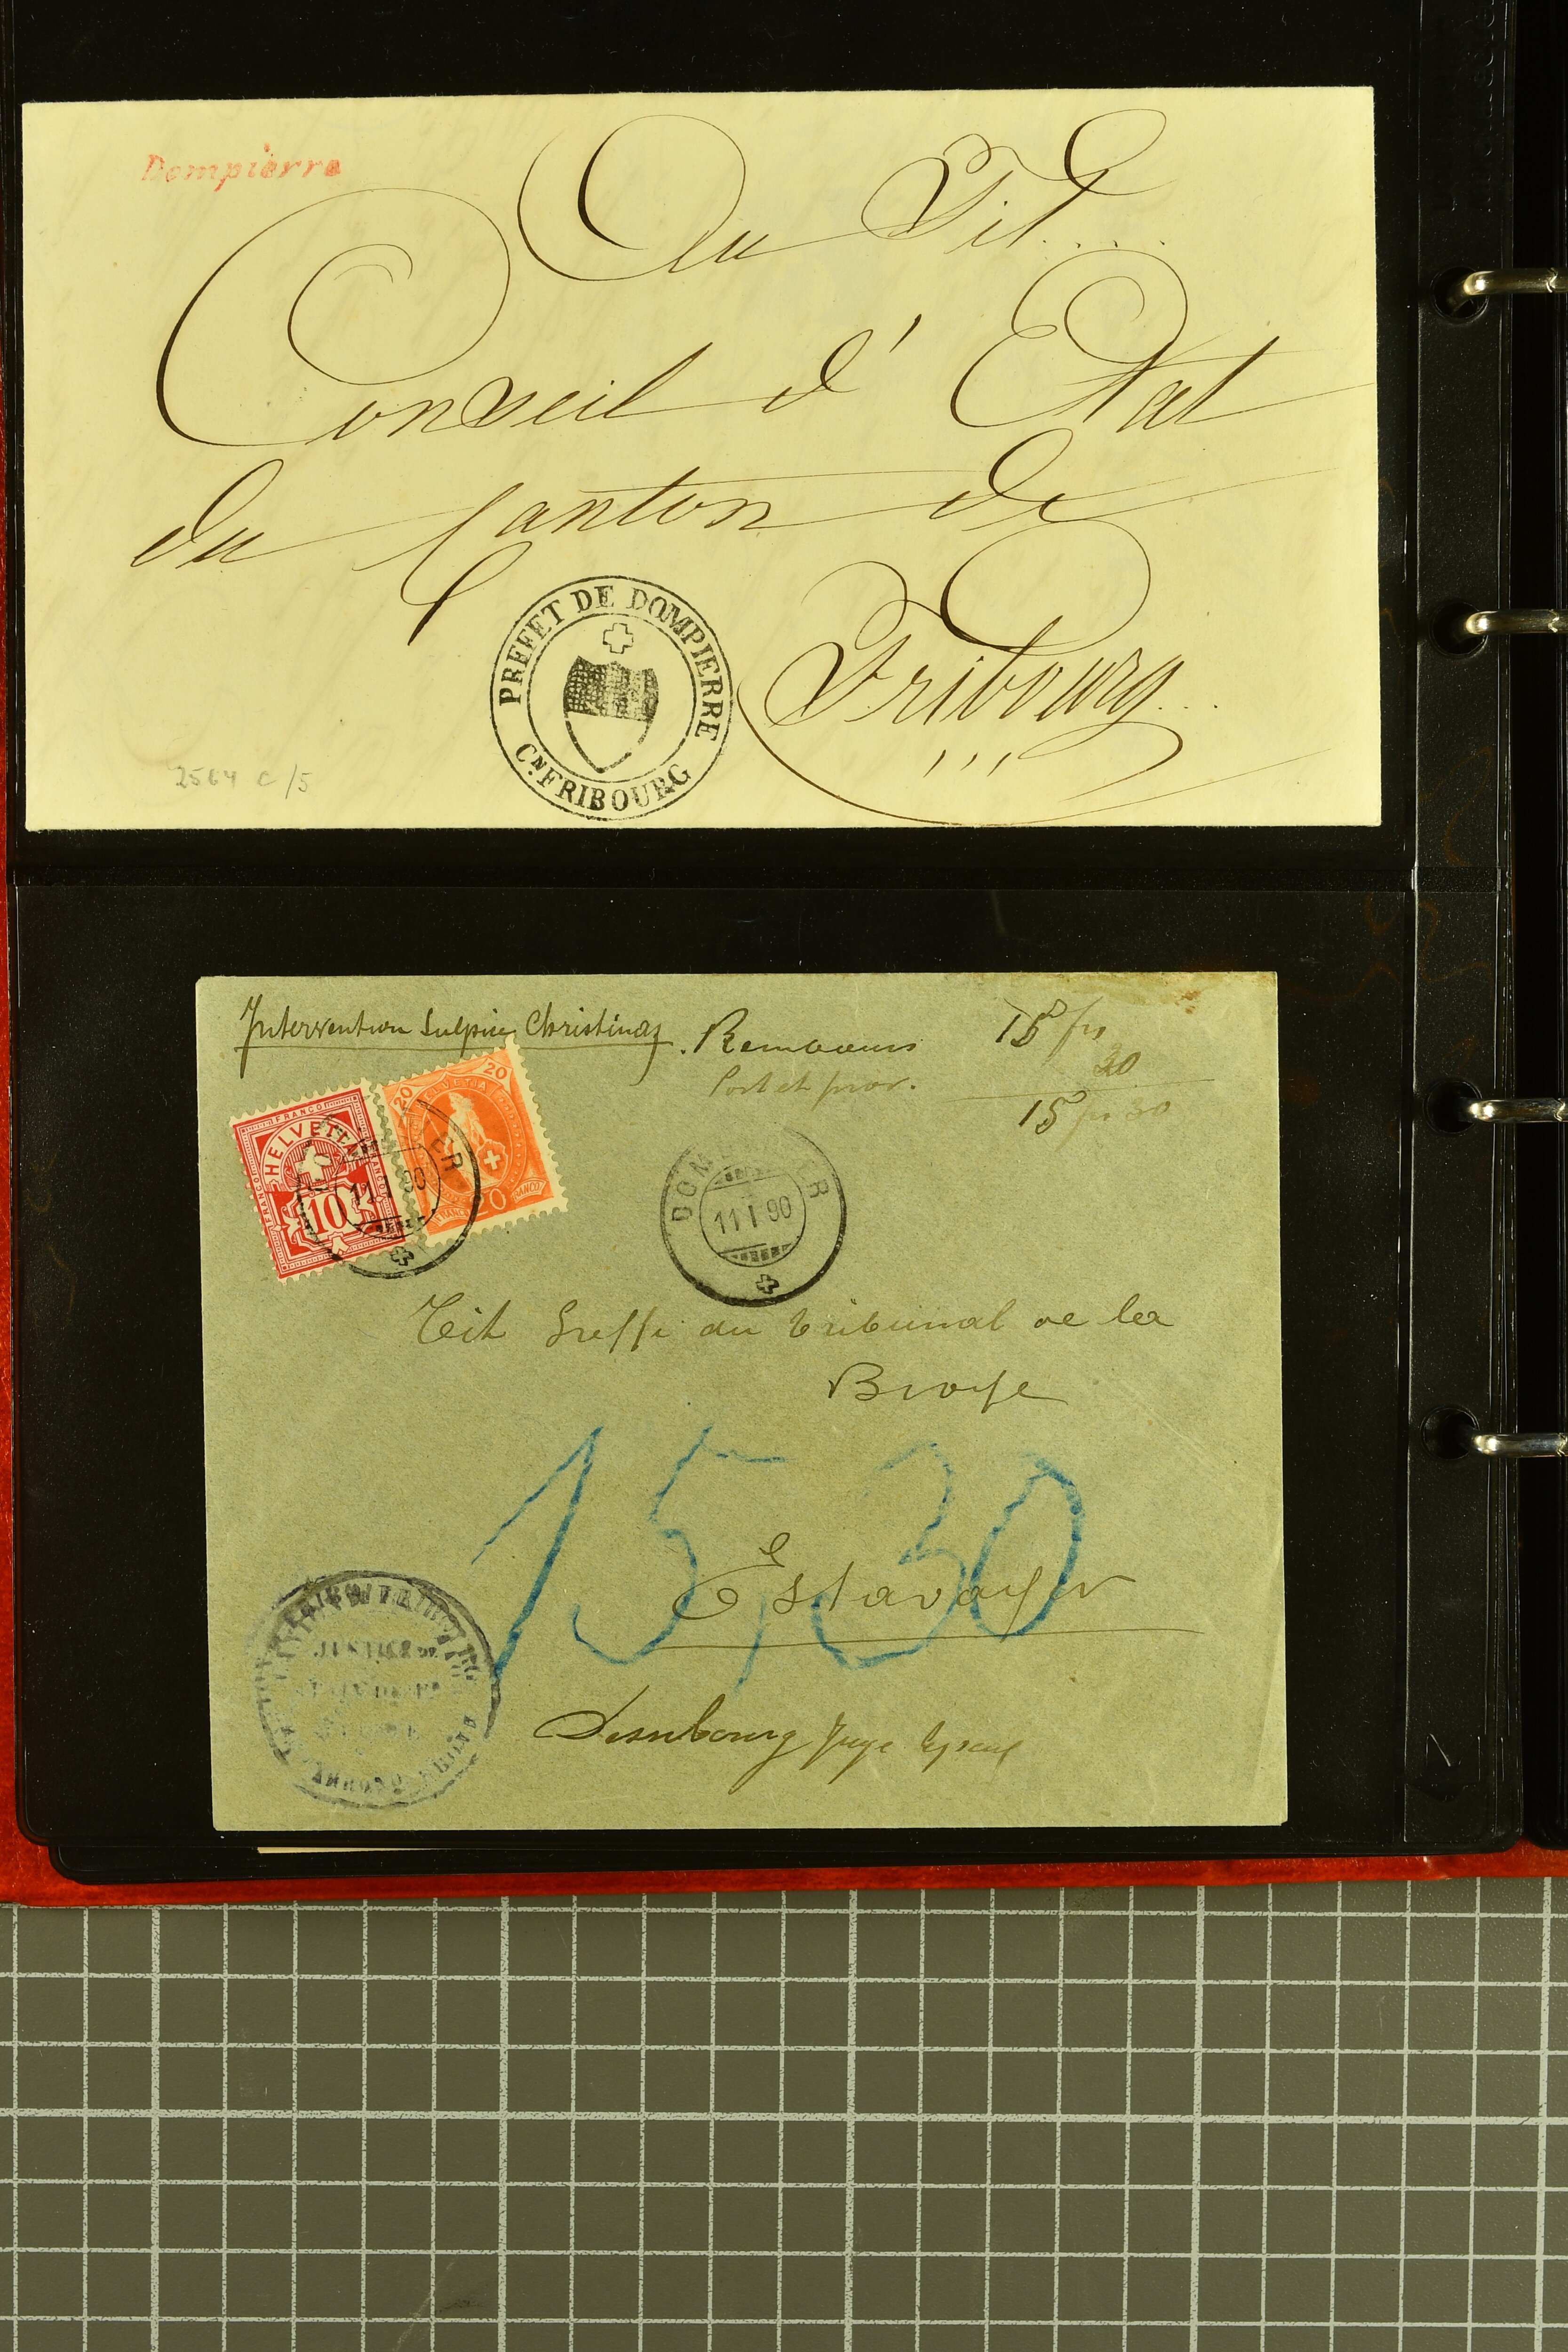 Dompierre
Au Tit...
Conseil d'Etat
du Canton de
Fribourg...
PREFET DE DOMPIERRE
CN. FRIBOURG
2564 c/5
Intervention Sulpice Christinaz. Rembours 15 frs
Port et prov. 30
15 frs 30
FRANCO
HELVETIA
FRANCO FRANCO
10
20 HELVETIA 20
20
FRANCO FRANCO
ER
11 90
DOM ER
11 I 90
Tit Greffe du Tribunal de la
Broye
15,30
Estavayer
JUSTICE DE
Juge